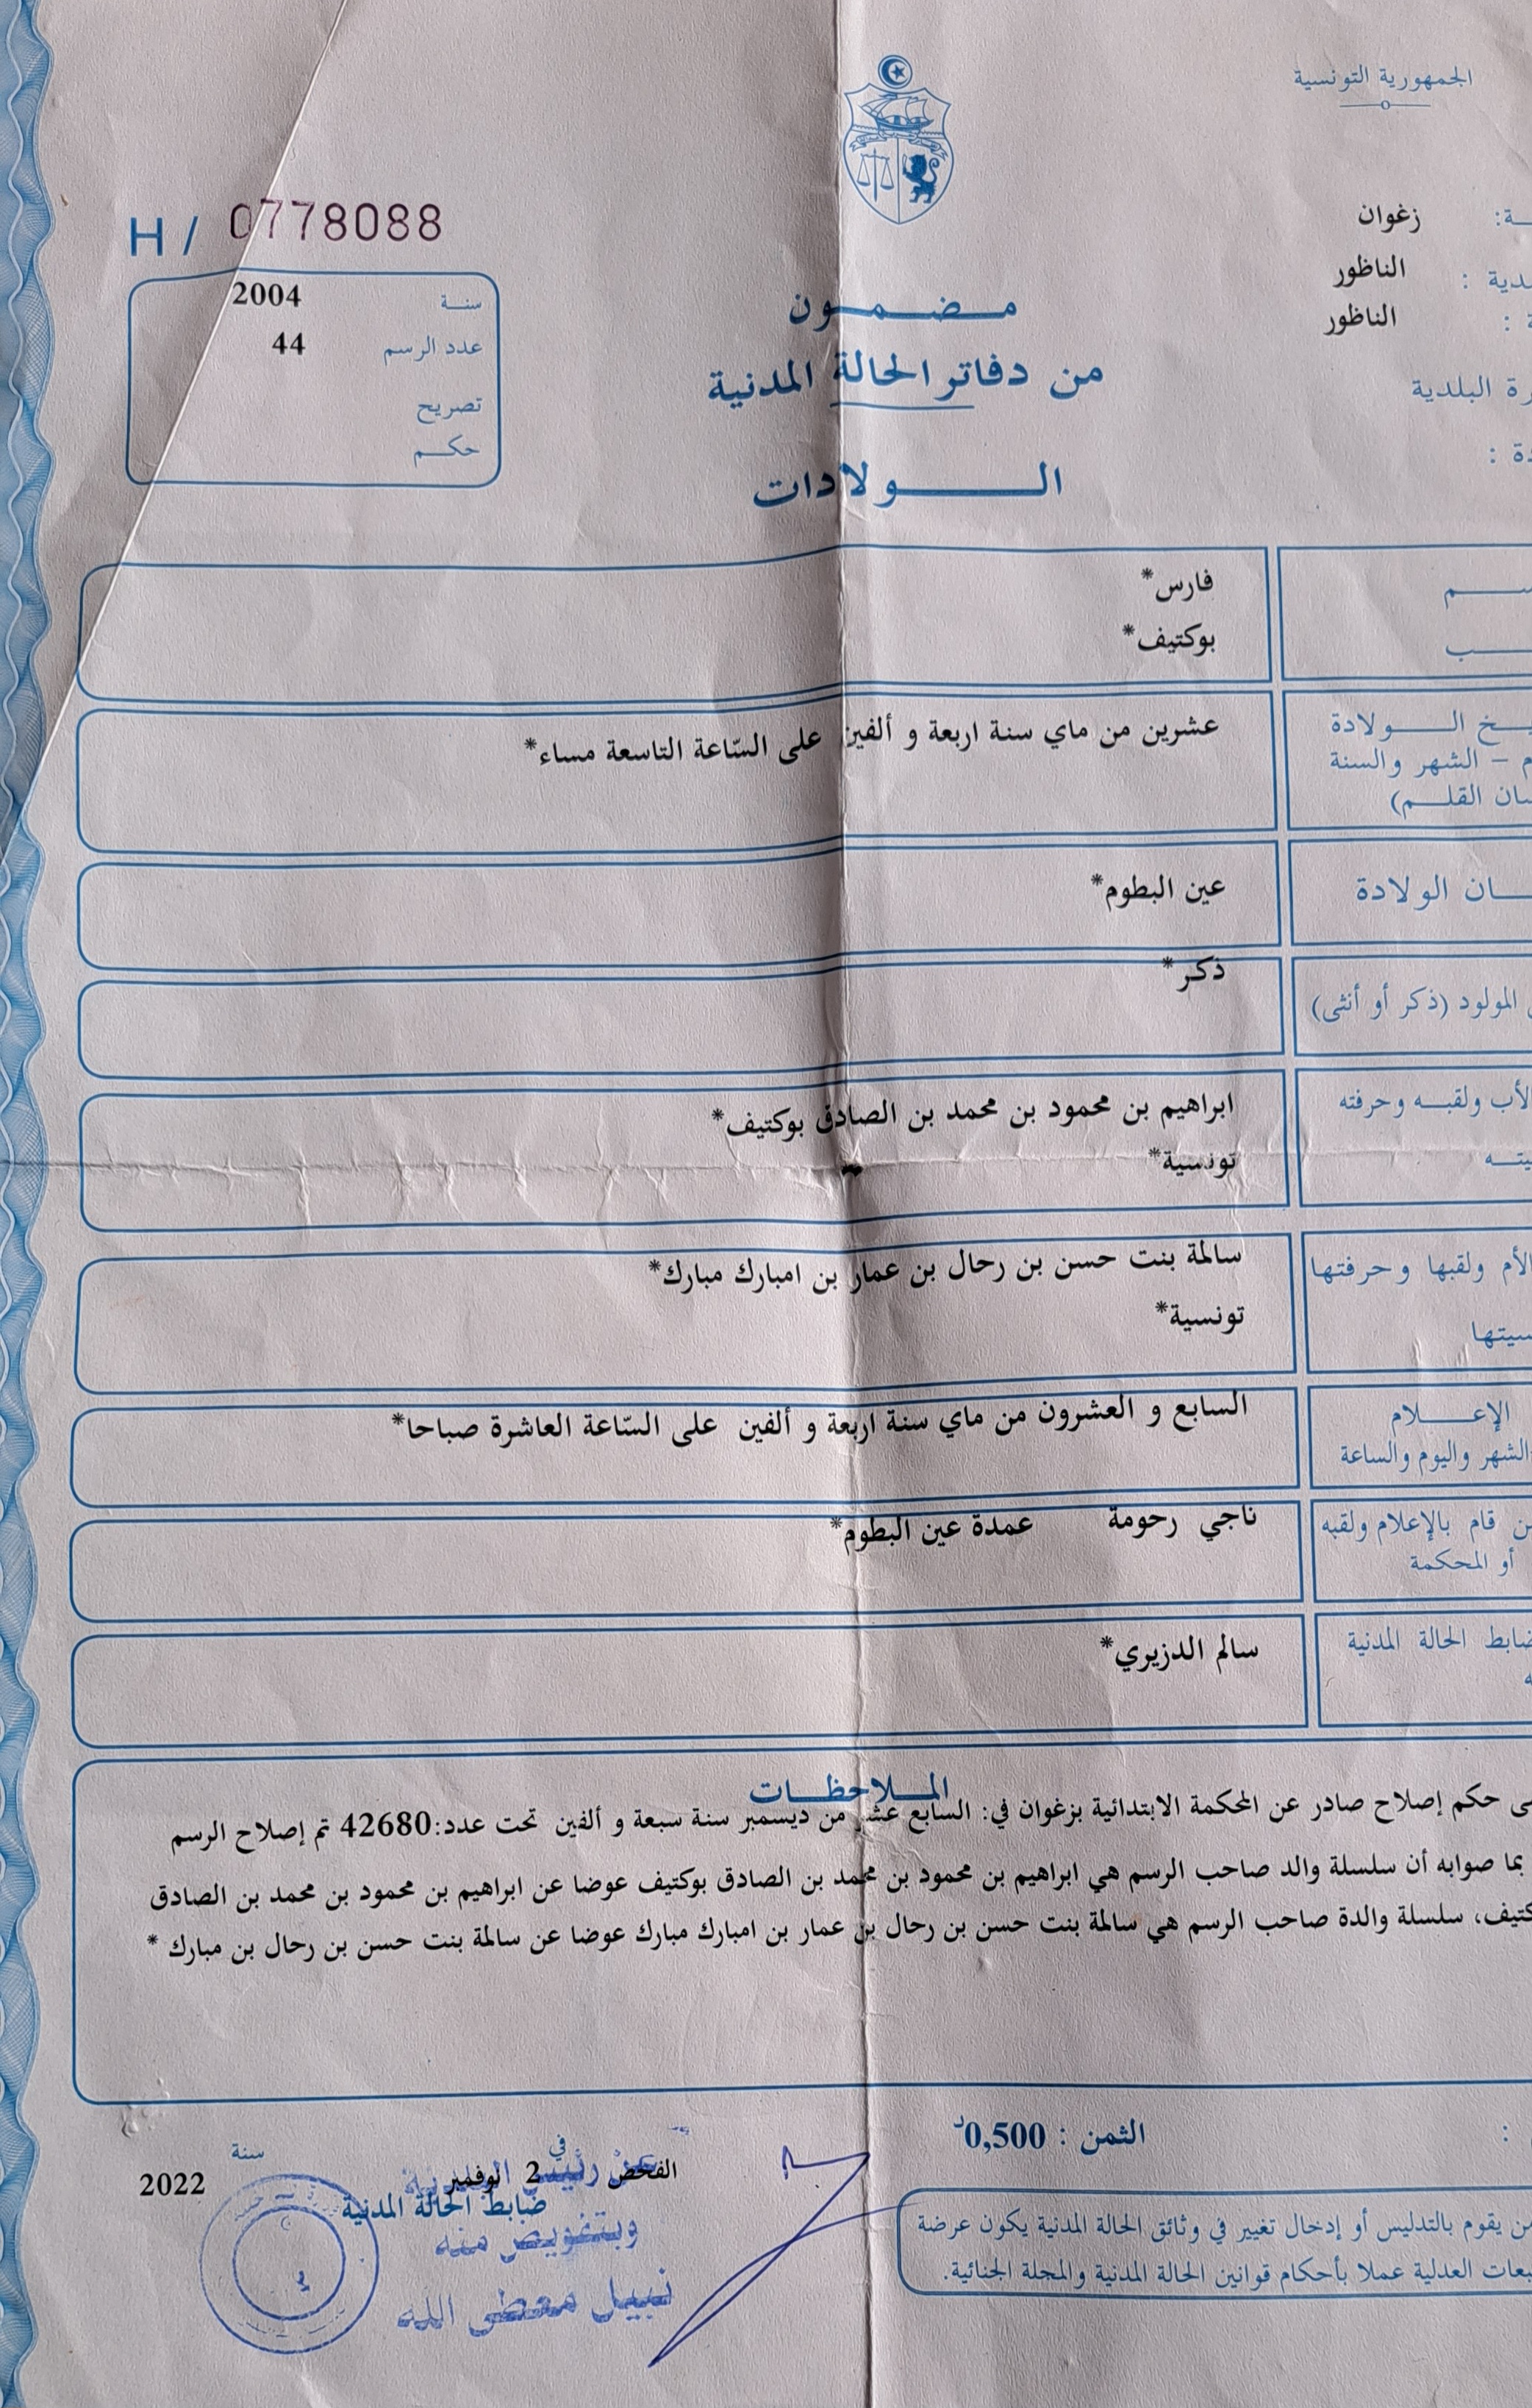 الجمهورية التونسية
H / 0778088
زغوان
الناظور
الناظور
البلدية
سنة 2004
عدد الرسم 44
تصريح
حكم
مضمون
من دفاتر الحالة المدنية
الولادات
فارس*
بوكتيف*
الولادة
عشرين من ماي سنة اربعة و ألفين على السّاعة التاسعة مساء*
– الشهر والسنة
القلم)
الولادة
عين البطوم*
ذكر*
المولود (ذكر أو أنثى)
ولقبه وحرفته
ابراهيم بن محمود بن محمد بن الصادق بوكتيف*
تونسية*
ولقبها وحرفتها
سالمة بنت حسن بن رحال بن عمار بن امبارك مبارك*
تونسية*
الإعلام
السابع و العشرون من ماي سنة اربعة و ألفين على السّاعة العاشرة صباحا*
والشهر واليوم والساعة
ناجي رحومة عمدة عين البطوم*
قام بالإعلام ولقبه
أو المحكمة
الحالة المدنية
سالم الدزيري*
الملاحظات
حكم إصلاح صادر عن المحكمة الابتدائية بزغوان في: السابع عشر من ديسمبر سنة سبعة و ألفين تحت عدد:42680 تم إصلاح الرسم
بما صوابه أن سلسلة والد صاحب الرسم هي ابراهيم بن محمود بن محمد بن الصادق بوكتيف عوضا عن ابراهيم بن محمود بن محمد بن الصادق
سلسلة والدة صاحب الرسم هي سالمة بنت حسن بن رحال بن عمار بن امبارك مبارك عوضا عن سالمة بنت حسن بن رحال بن مبارك *
الثمن : 0,500د
الفحص في 2 نوفمبر سنة 2022
ضابط الحالة المدنية
عن رئيس البلدية
وبتفويض منه
نبيل معطى الله
يقوم بالتدليس أو إدخال تغيير في وثائق الحالة المدنية يكون عرضة
العدلية عملا بأحكام قوانين الحالة المدنية والمجلة الجنائية.